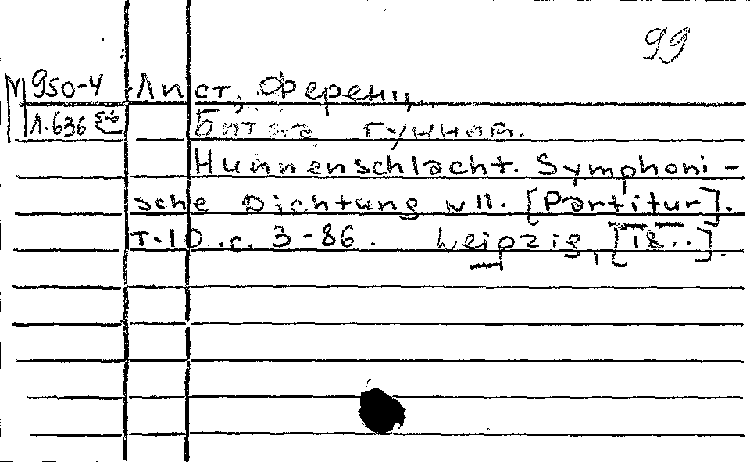 99
М 950-4 Лист, Ференц
Л.636 Битва гуннов.
Hunnenschlacht. Symphoni-
sche Dichtung N 11. [Partitur].
Т.10. с. 3-86. Leipzig, [18..].